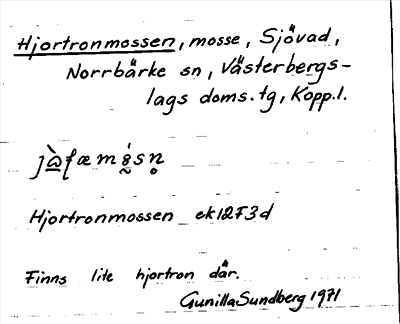 Hjortronmossen, mosse, Sjövad,
Norrbärke sn, Västerbergs-
lags doms. tg, Kopp.l.
Hjortronmossen ek12F3d
Finns lite hjortron där.
Gunilla Sundberg 1971